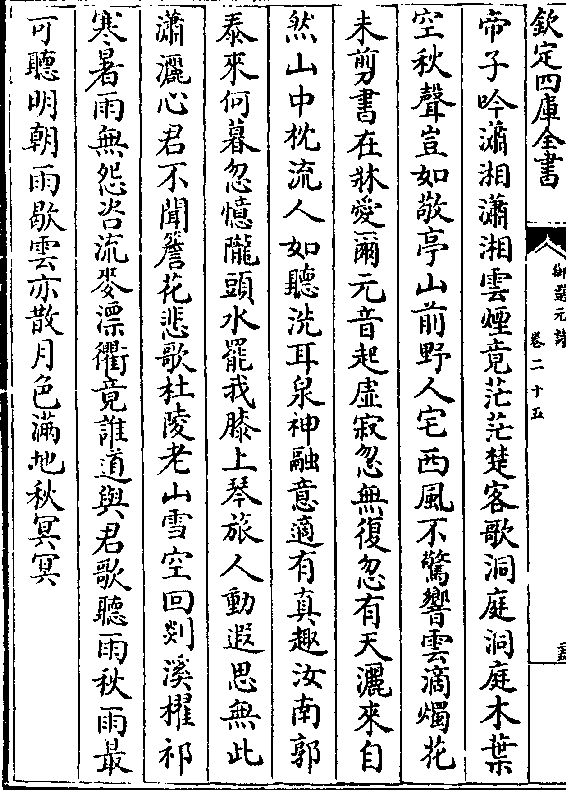 欽定四庫全書
御選元詩
卷二十五
帝子吟瀟湘瀟湘雲煙竟茫茫楚客歌洞庭洞庭木葉
空秋聲豈如敬亭山前野人宅西風不驚響雲滴燭花
未剪書在牀愛爾元音起虛寂忽無復忽有天灑來自
然山中枕流人如聽洗耳泉神融意適有真趣汝南郭
泰來何暮忽憶隴頭水罷我膝上琴旅人動遐思無此
瀟灑心君不聞簷花悲歌杜陵老山雪空回剡溪櫂祁
寒暑雨無怨咨流麥漂衢竟誰道與君歌聽雨秋雨最
可聽明朝雨歇雲亦散月色滿地秋冥冥